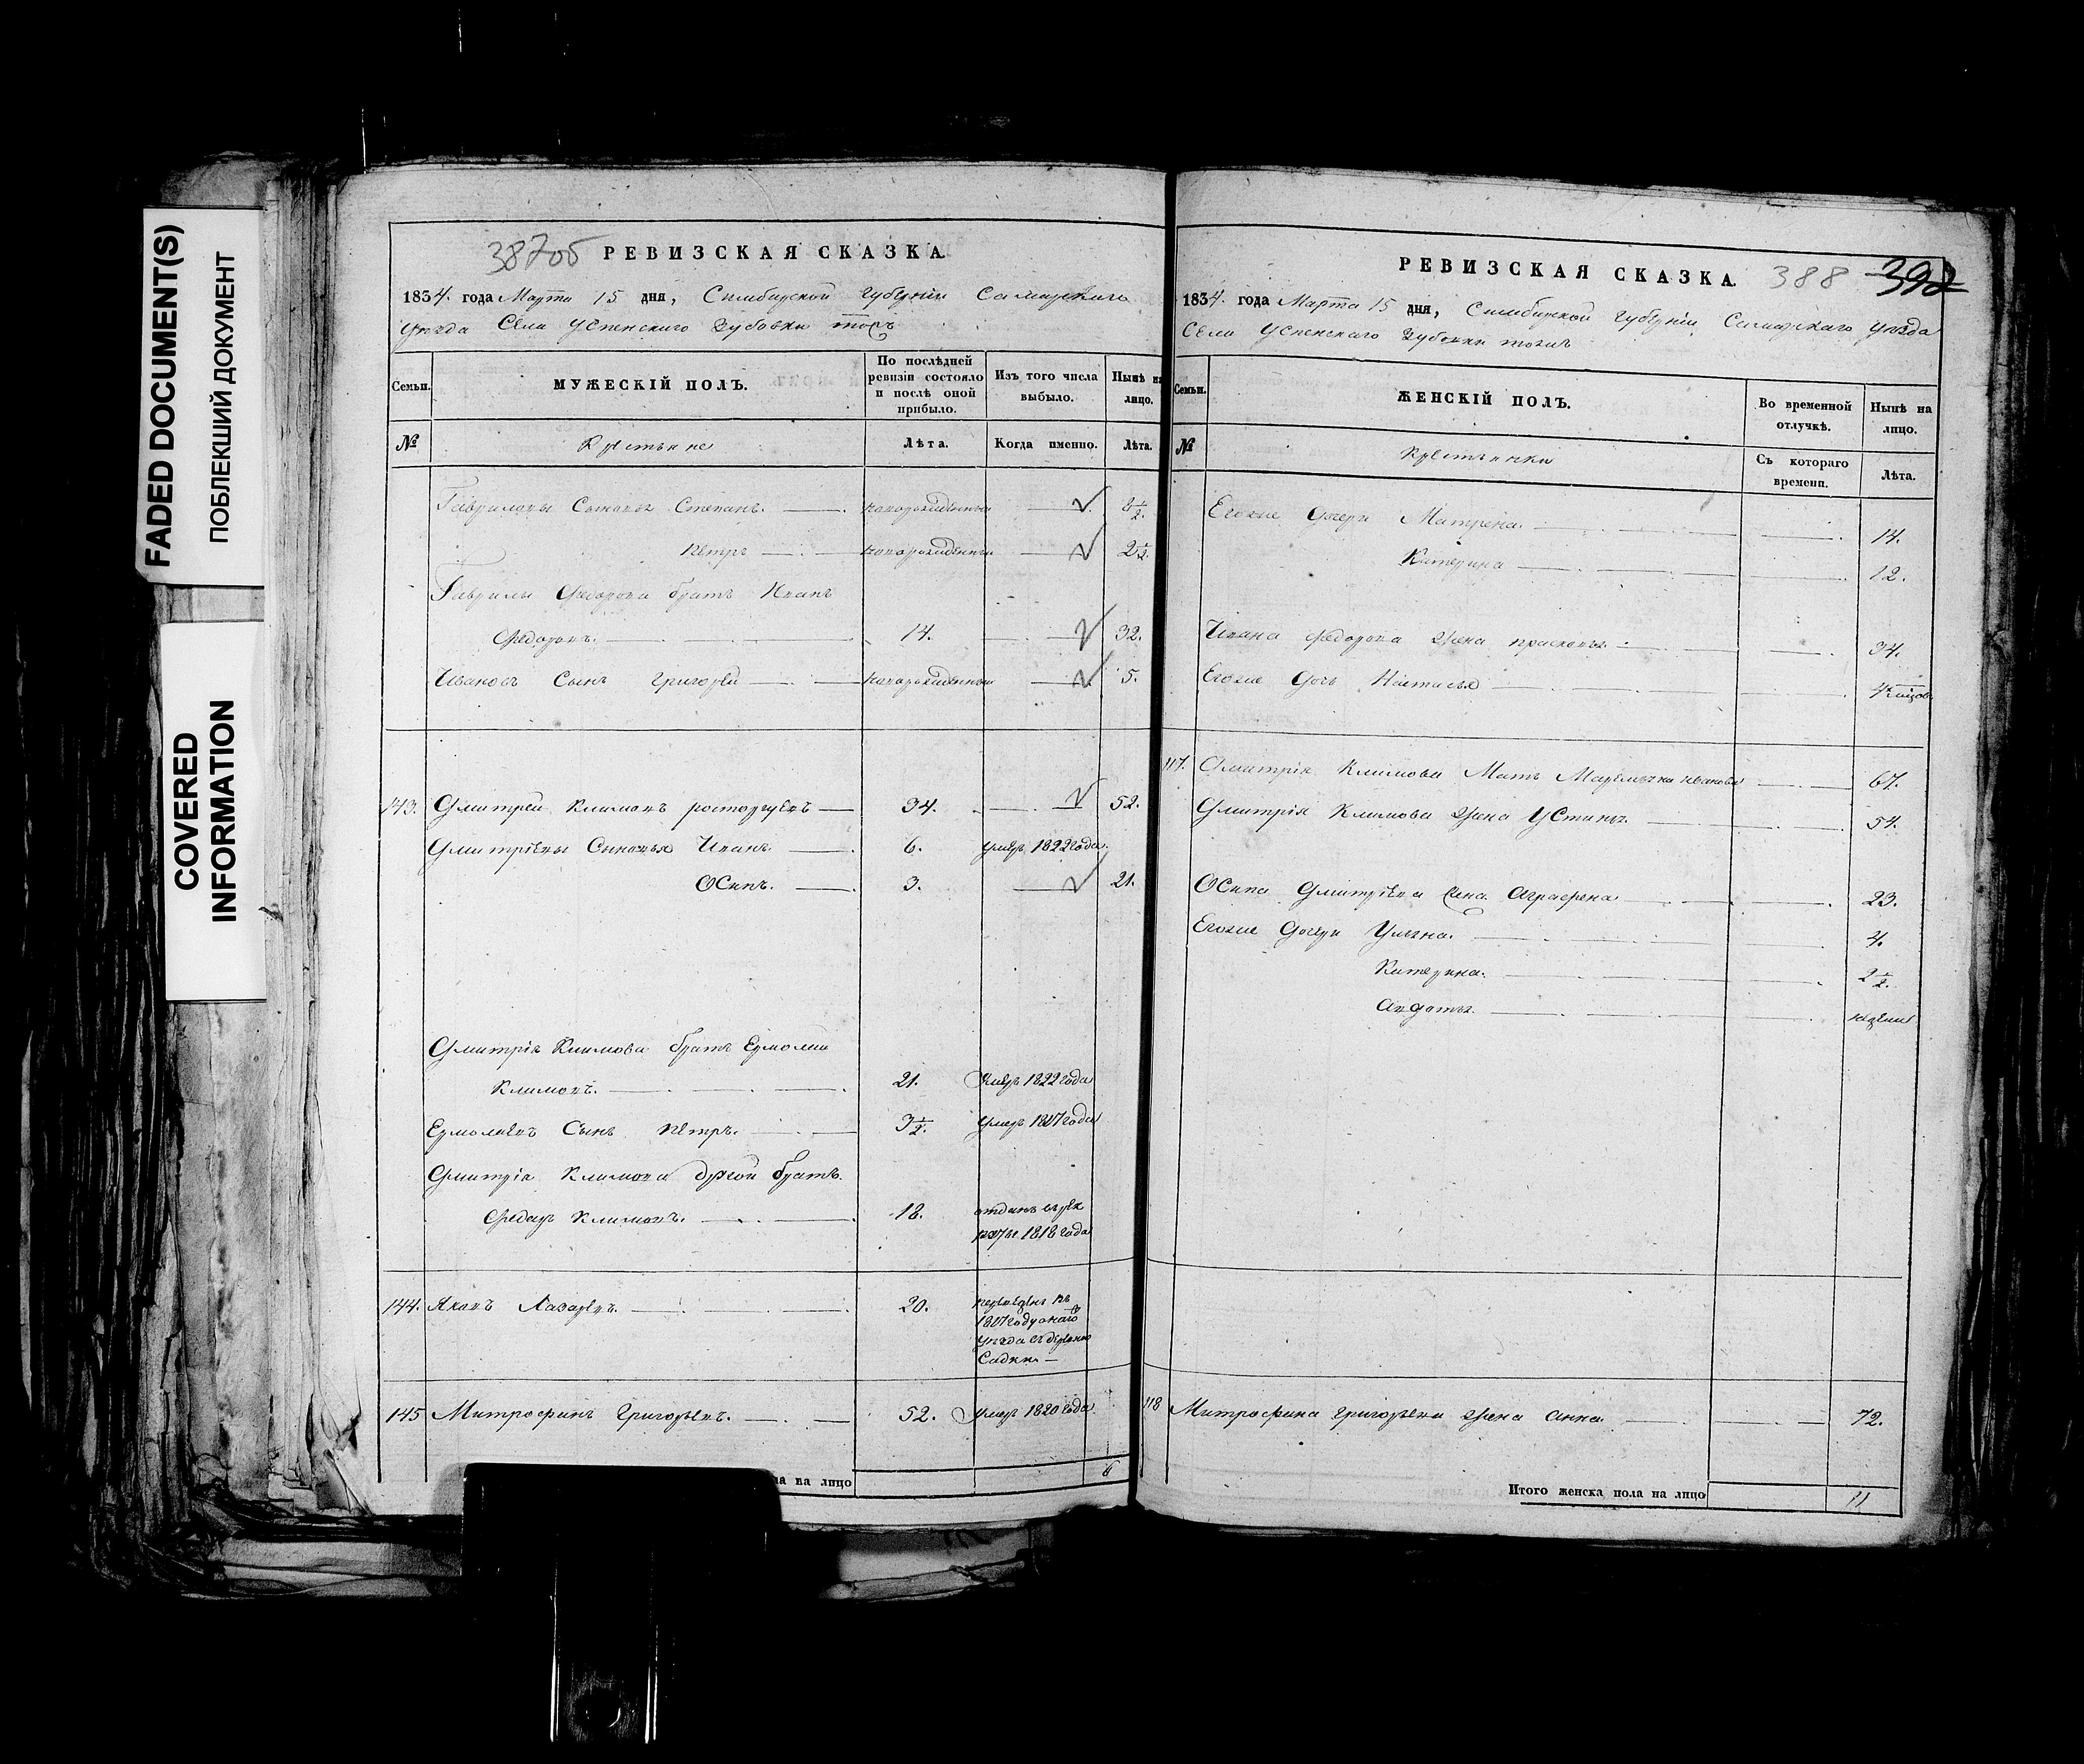 FADED DOCUMENT(S)
ПОБЛЕКШИЙ ДОКУМЕНТ
COVERED
INFORMATION
387об РЕВИЗСКАЯ СКАЗКА.
1834. года Марта 15 дня, Симбирской губерніи Самарскаго
уѣзда Села Успенскаго Зубовки тожъ
Семьи.
МУЖЕСКІЙ ПОЛЪ.
По послѣдней
ревизіи состояло
и послѣ оной
прибыло.
Изъ того числа
выбыло.
Нынѣ на
лицо.
№
Крестьяне
Лѣта.
Когда именно.
Лѣта.
Гавриловы Сыновья Степанъ. новорожденный
Петръ новорожденный 2½
Гаврилы Федорова братъ Иванъ
Федоровъ. 14. 32.
Ивановъ Сынъ Григорей новорожденный 5.
143. Дмитрей Климовъ росторгуевъ 34. 52.
Дмитріевы Сыновья Иванъ. 6. умеръ 1822 года.
Осипъ. 3. 21.
Дмитрія Климова братъ Ермолай
Климовъ. 21. умеръ 1822 года
Ермолаевъ Сынъ Петръ. 3½. умеръ 1817 года
Дмитрія Климова другой братъ.
Федоръ Климовъ. 18. отданъ въ рек
руты 1818 года
144. Яковъ Лазаревъ. 20. переведенъ въ
уѣзда въ деревню
Садки
145 Митрофанъ Григорьевъ. 52. умеръ 1820 года
на лицо 6
РЕВИЗСКАЯ СКАЗКА. 388 392
1834. года Марта 15 дня, Симбирской губерніи Самарскаго уѣзда
Села Успенскаго Зубовки тожъ
Семьи.
ЖЕНСКІЙ ПОЛЪ.
Во временной
отлучкѣ.
Нынѣ на
лицо.
№
Крестьянки
Съ котораго
времени.
Лѣта.
Егоже Дочери Матрена. 14.
Катерина 12.
Ивана Федорова Жена прасковья. 34.
Егоже Дочь Настасья
117. Дмитрія Климова Мать Маремьяна иванова 67.
Дмитрія Климова Жена Устинья. 54.
Осипа Дмитріева Жена Аграфена 23.
Егоже Дочери Ульяна. 4.
Катерина. 2½.
Авдотья.
118 Митрофана григорьева Жена Анна. 72.
Итого женска пола на лицо 11